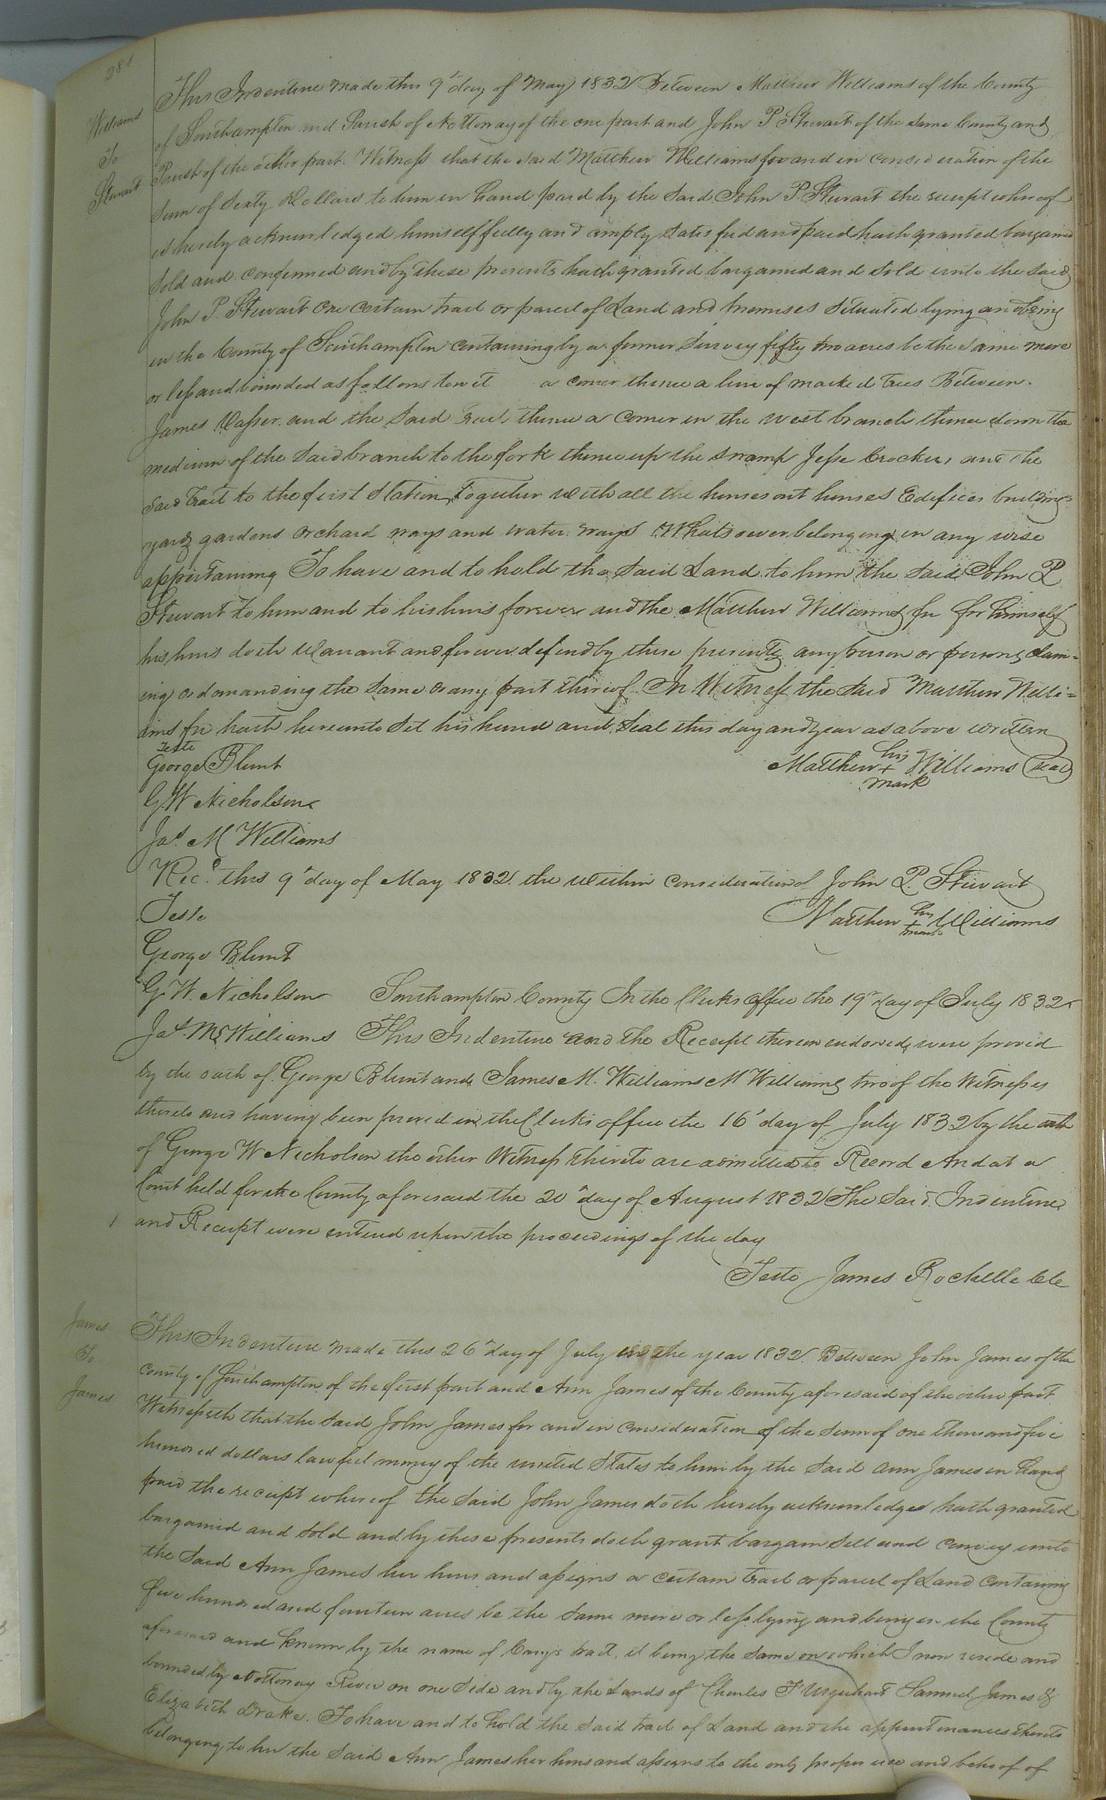 281
Williams
To
Stewart
This Indenture made this 9th day of May 1832 Between Matthew Williams of the County
of Southampton and Parish of Nottoway of the one part and John P Stewart of the same County and
Parish of the other part. Witness that the said Matthew Williams for and in consideration of the
sum of Sixty Dollars to him in hand paid by the said John P. Stewart the receipt whereof
is hereby acknowledged himself fully and amply satisfied and paid hath granted bargained
sold and confirmed and by these presents hath granted bargained and sold unto the said
John P. Stewart one certain tract or parcel of Land and premises situated lying and being
in the County of Southampton containing by a former survey fifty two acres be the same more
or less and bounded as follows towit a corner thence a line of marked trees Between
James Vasser and the said tract, thence a corner in the west branch thence down the
medium of the said branch to the fork thence up the swamp Jesse Crocker, and the
said tract to the first station, together with all the houses out houses Edifices buildings
yards gardens orchard ways and water ways Whatsoever belonging in any wise
appertaining To have and to hold the said Land to him the said John P
Stewart to him and to his heirs forever and the Matthew Williams for himself
his heirs doth Warrant and forever defend by these presents any person or persons claim-
ing or demanding the same or any part thereof. In Witness the said Matthew Willi=
ams hath hereunto set his hand and seal this day and year as above written
Teste
George Blunt
Matthew his + mark Williams (seal)
G W Nicholson
Jas. M Williams
Recd. this 9th day of May 1832 the within consideration of John P. Stewart
Teste
Matthew his + mark Williams
George Blunt
G. W. Nicholson Southampton County In the Clerks Office the 19th day of July 1832
Jas. M Williams This Indenture and the Receipt thereon endorsed, were proved
by the oath of George Blunt and James M. Williams M Williams two of the Witnesses
thereto and having been proved in the Clerks office the 16th day of July 1832 by the oath
of George W Nicholson the other Witness thereto are admitted to Record And at a
Court held for the County aforesaid the 20th day of August 1832 The said Indenture
and Receipt were entered upon the proceedings of the day
Teste James Rochelle Clk
James
To
James
This Indenture made this 26th day of July in the year 1832. Between John James of the
County of Southampton of the first part and Ann James of the County aforesaid of the other part
Witnesseth that the said John James for and in consideration of the sum of one thousand five
hundred dollars lawful money of the united States to him by the said Ann James in hand
paid the receipt whereof the said John James doth hereby acknowledges hath granted
bargained and sold and by these presents doth grant bargain sell and convey unto
the said Ann James her heirs and assigns a certain tract or parcel of Land containing
five hundred and fourteen acres be the same more or less lying and being in the County
aforesaid and known by the name of tract, it being the same on which I now reside and
bounded by Nottoway River on one side and by the Lands of Charles F Urquhart Samuel James &
Elizabeth Drake. To have and to hold the said tract of Land and the appurtenances thereto
belonging to her the said Ann James her heirs and assigns to the only proper use and behoof of